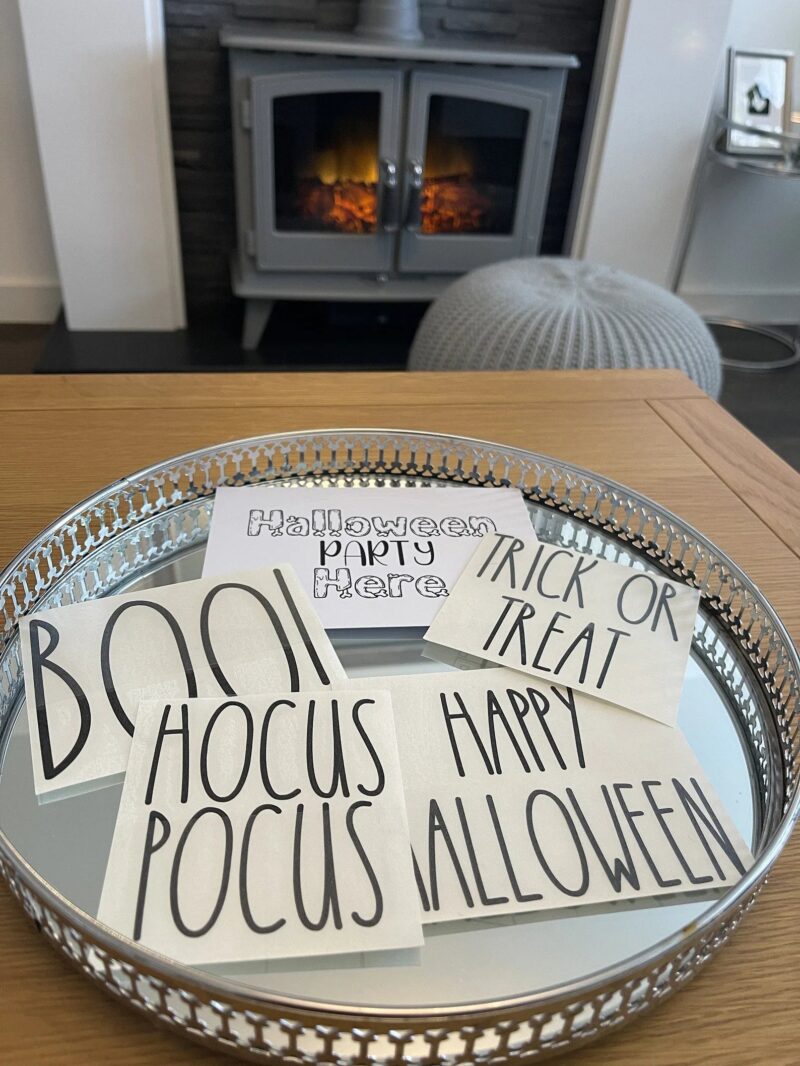 Halloween
PARTY
Here
TRICK OR
TREAT
BOO!
HOCUS
POCUS
HAPPY
ALLOWEEN